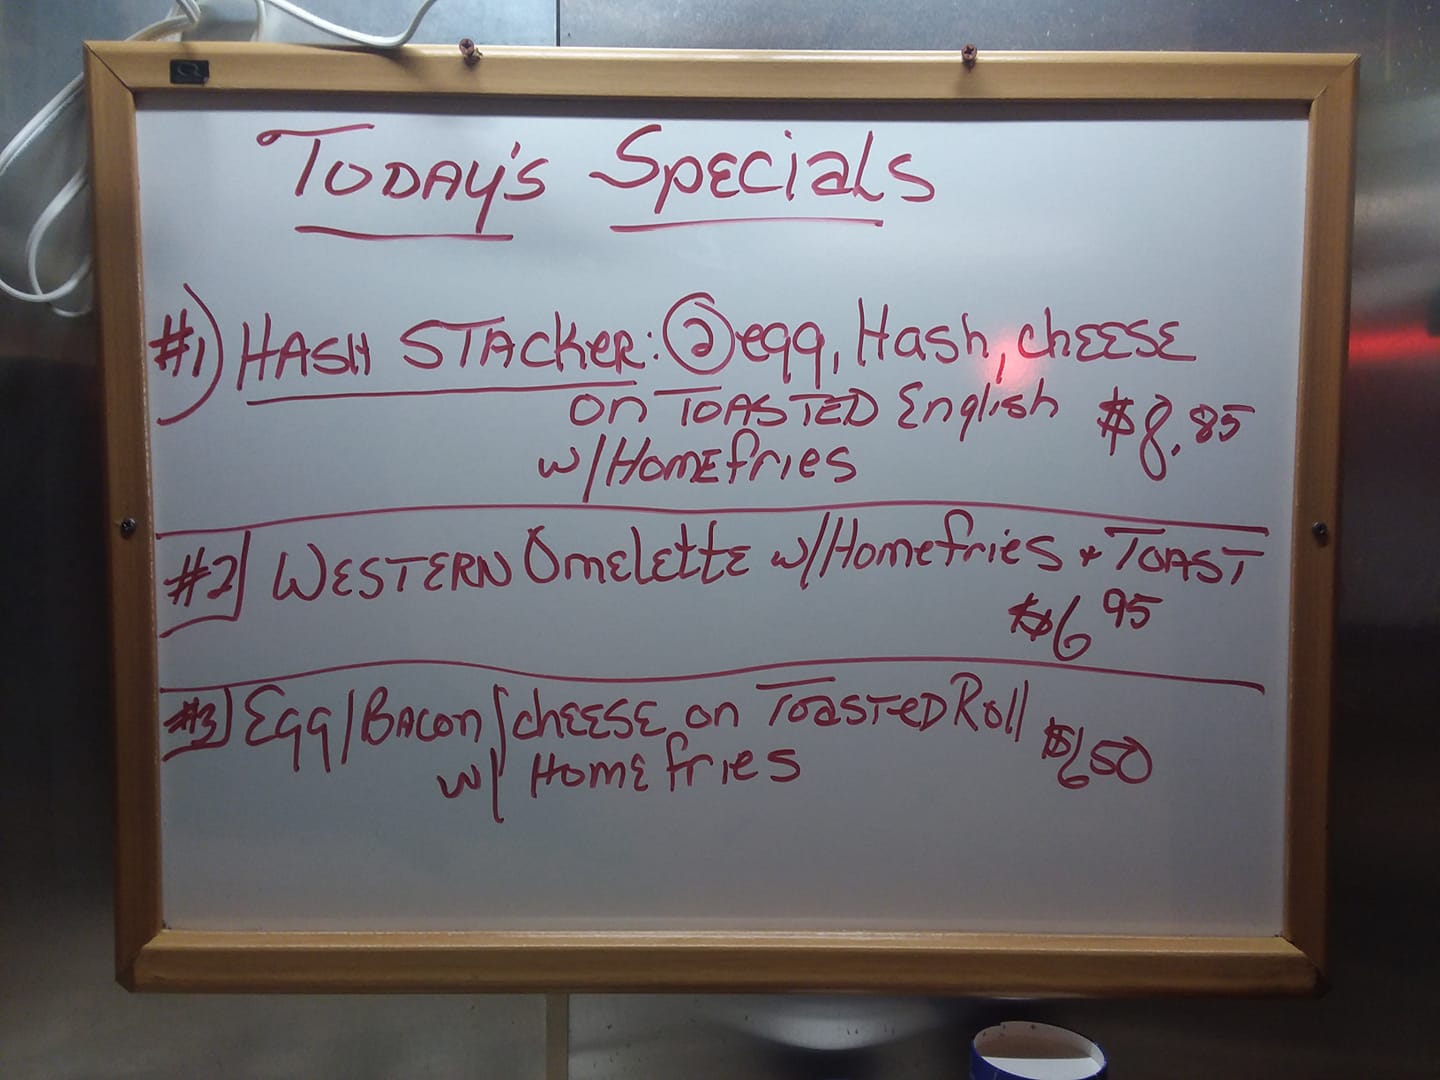 Today's Specials
#1) Hash Stacker: ② egg, Hash, cheese
on Toasted English $8.85
w/Homefries
#2 Western Omelette w/Homefries + Toast
$6 95
#3 Egg/Bacon/cheese on Toasted Roll $6 50
w/ Homefries